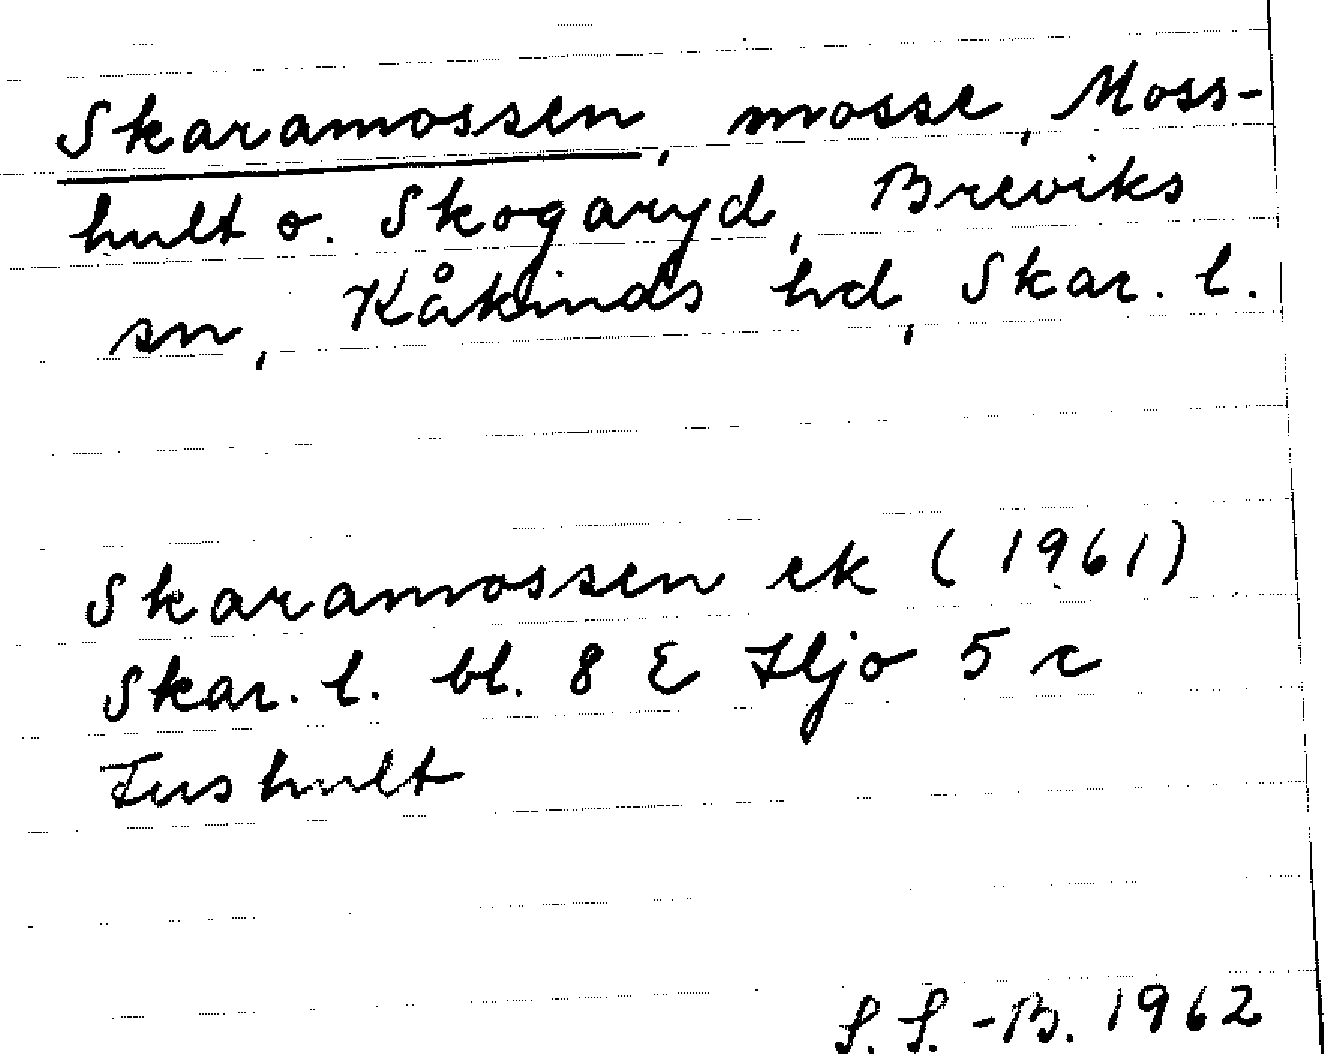 Skaramossen, mosse, Moss-
hult o. Skogaryd, Breviks
sn, Kåkinds hd, Skar. l.
Skaramossen ek (1961)
Skar. l. bl. 8 E Hjo 5 c
Fushult
S. S.-B. 1962